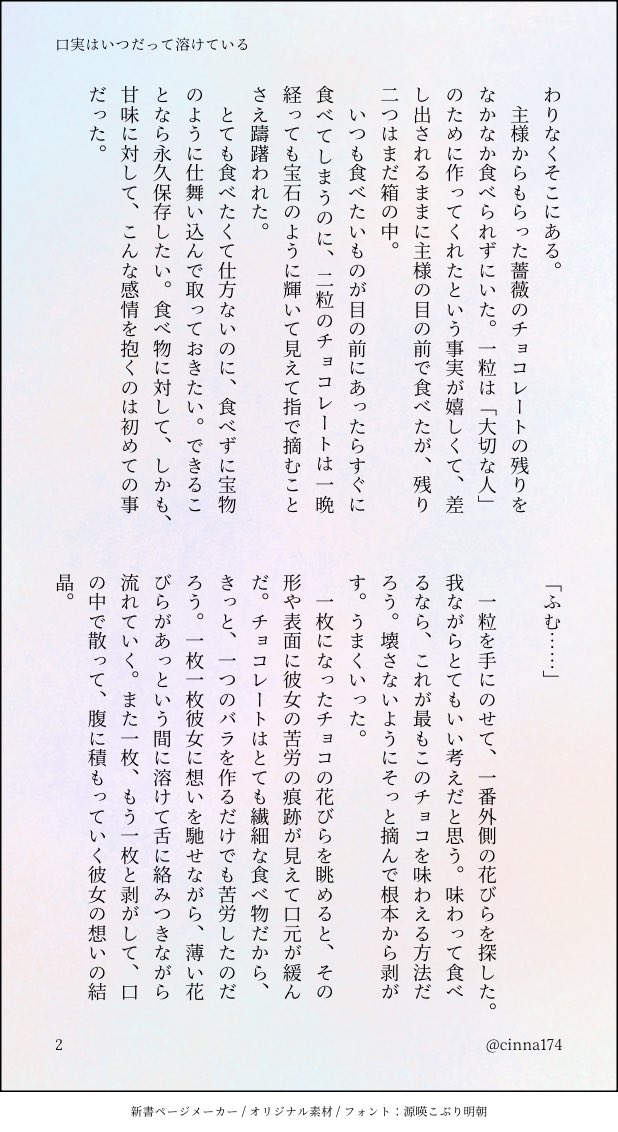 口実はいつだって溶けている
わりなくそこにある。
　主様からもらった薔薇のチョコレートの残りを
なかなか食べられずにいた。一粒は「大切な人」
のために作ってくれたという事実が嬉しくて、差
し出されるままに主様の目の前で食べたが、残り
二つはまだ箱の中。
　いつも食べたいものが目の前にあったらすぐに
食べてしまうのに、二粒のチョコレートは一晩
経っても宝石のように輝いて見えて指で摘むこと
さえ躊躇われた。
　とても食べたくて仕方ないのに、食べずに宝物
のように仕舞い込んで取っておきたい。できるこ
となら永久保存したい。食べ物に対して、しかも、
甘味に対して、こんな感情を抱くのは初めての事
だった。
「ふむ……」
　一粒を手にのせて、一番外側の花びらを探した。
我ながらとてもいい考えだと思う。味わって食べ
るなら、これが最もこのチョコを味わえる方法だ
ろう。壊さないようにそっと摘んで根本から剥が
す。うまくいった。
　一枚になったチョコの花びらを眺めると、その
形や表面に彼女の苦労の痕跡が見えて口元が緩ん
だ。チョコレートはとても繊細な食べ物だから、
きっと、一つのバラを作るだけでも苦労したのだ
ろう。一枚一枚彼女に想いを馳せながら、薄い花
びらがあっという間に溶けて舌に絡みつきながら
流れていく。また一枚、もう一枚と剥がして、口
の中で散って、腹に積もっていく彼女の想いの結
晶。
2
@cinna174
新書ページメーカー / オリジナル素材 / フォント：源暎こぶり明朝